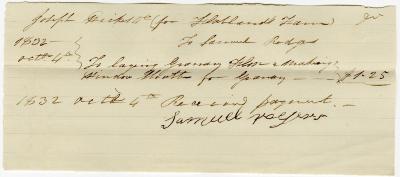 Joseph Hicks (for Farm Dr
1832 — To Samuel Rodgers
octr 4th To laying Granary floor & Making
Window for Granary — — $1.25
1832 octr 4th Received payment. —
Samuel rogers